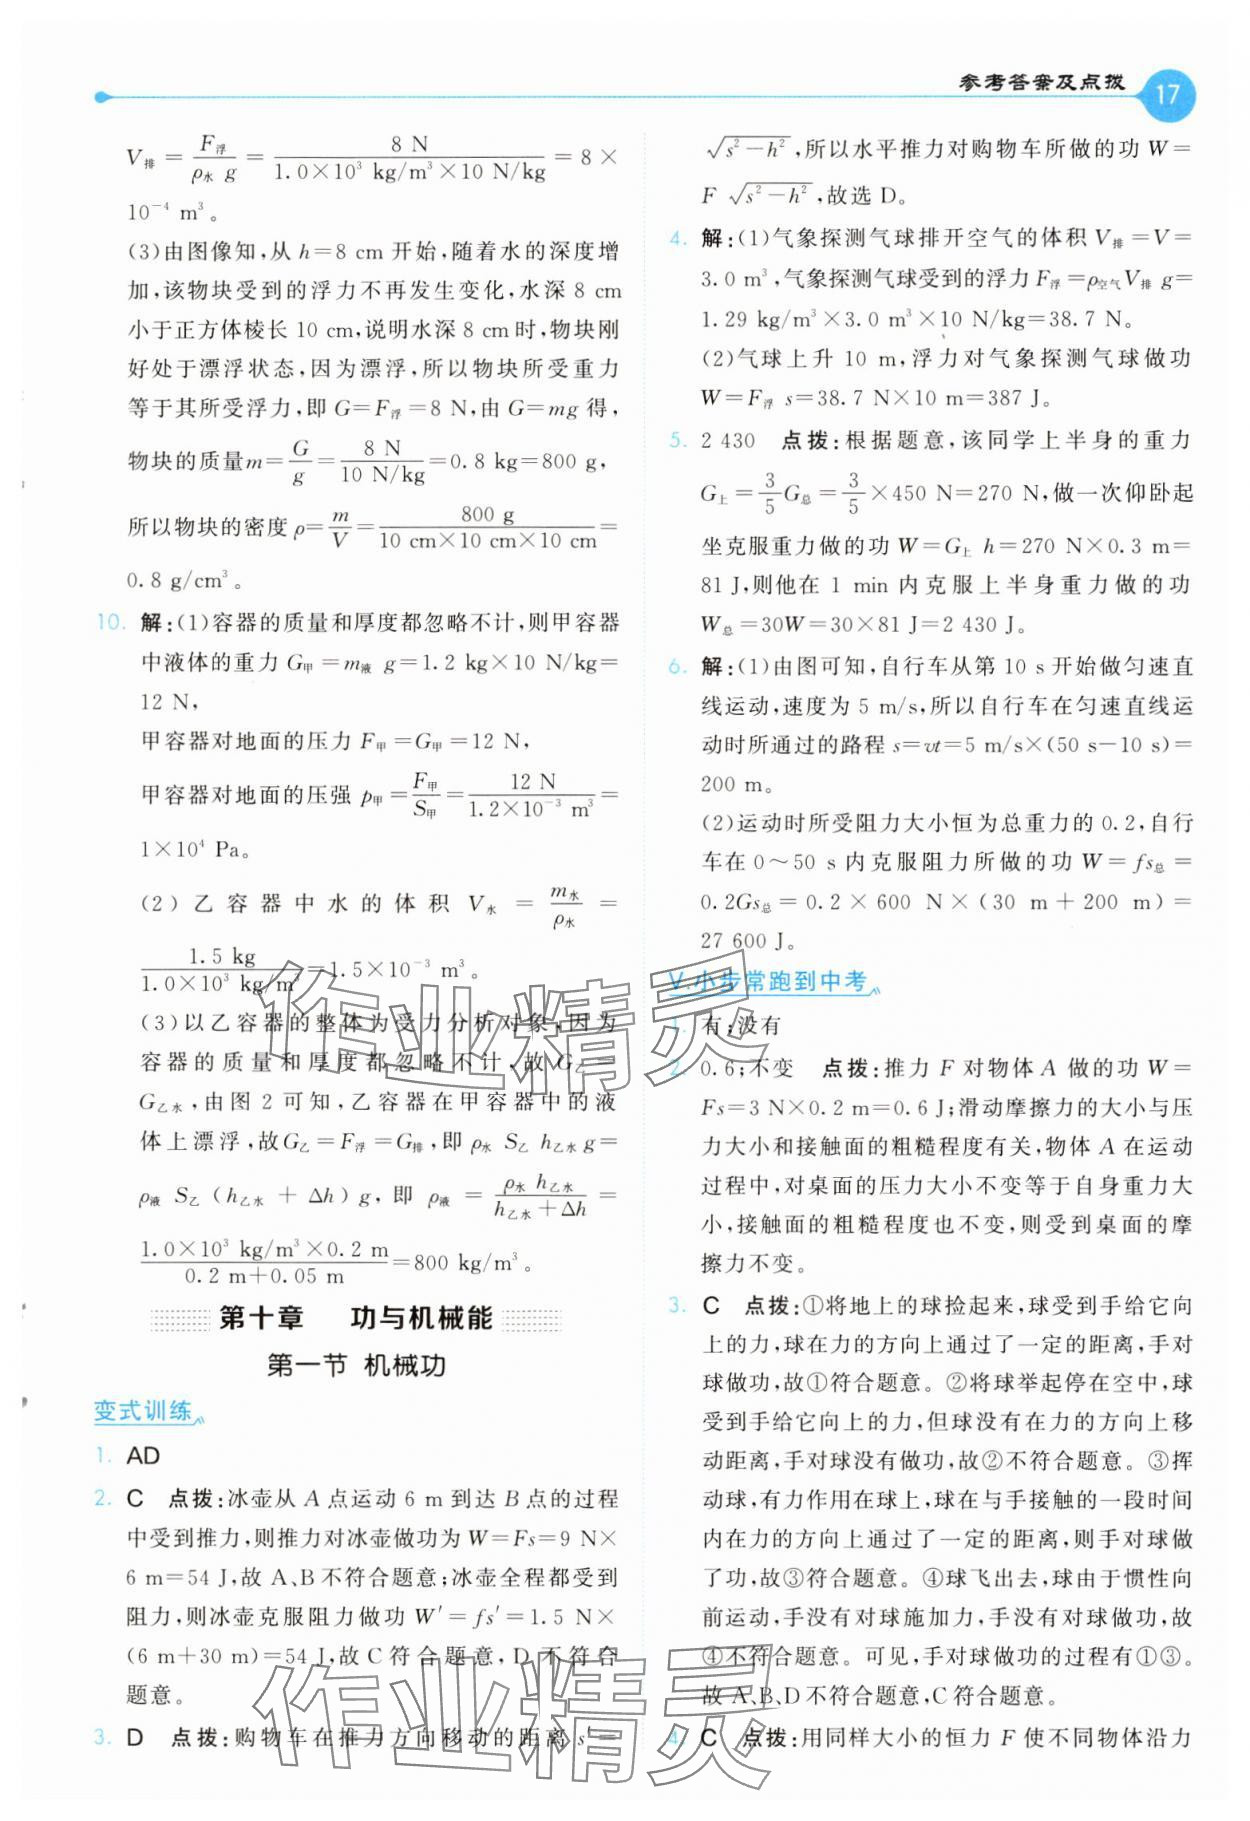 参考答案及点拨
17
V排=F浮/(ρ水 g)=8 N/(1.0×10³ kg/m³×10 N/kg)=8×
10⁻⁴ m³。
(3)由图像知,从 h=8 cm 开始,随着水的深度增
加,该物块受到的浮力不再发生变化,水深 8 cm
小于正方体棱长 10 cm,说明水深 8 cm 时,物块刚
好处于漂浮状态,因为漂浮,所以物块所受重力
等于其所受浮力,即 G=F浮=8 N,由 G=mg 得,
物块的质量m=G/g=8 N/(10 N/kg)=0.8 kg=800 g,
所以物块的密度 ρ=m/V=800 g/(10 cm×10 cm×10 cm)=
0.8 g/cm³。
10. 解:(1)容器的质量和厚度都忽略不计,则甲容器
中液体的重力 G甲=m液 g=1.2 kg×10 N/kg=
12 N,
甲容器对地面的压力 F甲=G甲=12 N,
甲容器对地面的压强 p甲=F甲/S甲=12 N/(1.2×10⁻³ m³)=
1×10⁴ Pa。
(2)乙容器中水的体积 V水=m水/ρ水=
1.5 kg/(1.0×10³ kg/m³)=1.5×10⁻³ m³。
(3)以乙容器的整体为受力分析对象,因为
容器的质量和厚度都忽略不计,故 G乙=
G乙水,由图 2 可知,乙容器在甲容器中的液
体上漂浮,故G乙=F浮=G排,即 ρ水 S乙 h乙水 g=
ρ液 S乙(h乙水+Δh)g,即 ρ液=ρ水 h乙水/(h乙水+Δh)=
(1.0×10³ kg/m³×0.2 m)/(0.2 m+0.05 m)=800 kg/m³。
第十章 功与机械能
第一节 机械功
变式训练
1. AD
2. C 点拨:冰壶从 A 点运动 6 m 到达 B 点的过程
中受到推力,则推力对冰壶做功为 W=Fs=9 N×
6 m=54 J,故 A、B 不符合题意;冰壶全程都受到
阻力,则冰壶克服阻力做功 W′=fs′=1.5 N×
(6 m+30 m)=54 J,故 C 符合题意,D 不符合
题意。
3. D 点拨:购物车在推力方向移动的距离 s′=
√(s²-h²),所以水平推力对购物车所做的功 W=
F√(s²-h²),故选 D。
4. 解:(1)气象探测气球排开空气的体积 V排=V=
3.0 m³,气象探测气球受到的浮力 F浮=ρ空气V排 g=
1.29 kg/m³×3.0 m³×10 N/kg=38.7 N。
(2)气球上升 10 m,浮力对气象探测气球做功
W=F浮 s=38.7 N×10 m=387 J。
5. 2 430 点拨:根据题意,该同学上半身的重力
G上=3/5G总=3/5×450 N=270 N,做一次仰卧起
坐克服重力做的功 W=G上 h=270 N×0.3 m=
81 J,则他在 1 min 内克服上半身重力做的功
W总=30W=30×81 J=2 430 J。
6. 解:(1)由图可知,自行车从第 10 s 开始做匀速直
线运动,速度为 5 m/s,所以自行车在匀速直线运
动时所通过的路程 s=vt=5 m/s×(50 s-10 s)=
200 m。
(2)运动时所受阻力大小恒为总重力的 0.2,自行
车在 0～50 s 内克服阻力所做的功 W=fs总=
0.2Gs总=0.2×600 N×(30 m+200 m)=
27 600 J。
V.小步常跑到中考
1. 有;没有
2. 0.6;不变 点拨:推力 F 对物体 A 做的功 W=
Fs=3 N×0.2 m=0.6 J;滑动摩擦力的大小与压
力大小和接触面的粗糙程度有关,物体 A 在运动
过程中,对桌面的压力大小不变等于自身重力大
小,接触面的粗糙程度也不变,则受到桌面的摩
擦力不变。
3. C 点拨:①将地上的球捡起来,球受到手给它向
上的力,球在力的方向上通过了一定的距离,手对
球做功,故①符合题意。②将球举起停在空中,球
受到手给它向上的力,但球没有在力的方向上移
动距离,手对球没有做功,故②不符合题意。③挥
动球,有力作用在球上,球在与手接触的一段时间
内在力的方向上通过了一定的距离,则手对球做
了功,故③符合题意。④球飞出去,球由于惯性向
前运动,手没有对球施加力,手没有对球做功,故
④不符合题意。可见,手对球做功的过程有①③。
故 A、B、D 不符合题意,C 符合题意。
4. C 点拨:用同样大小的恒力 F 使不同物体沿力
作业精灵
作业精灵